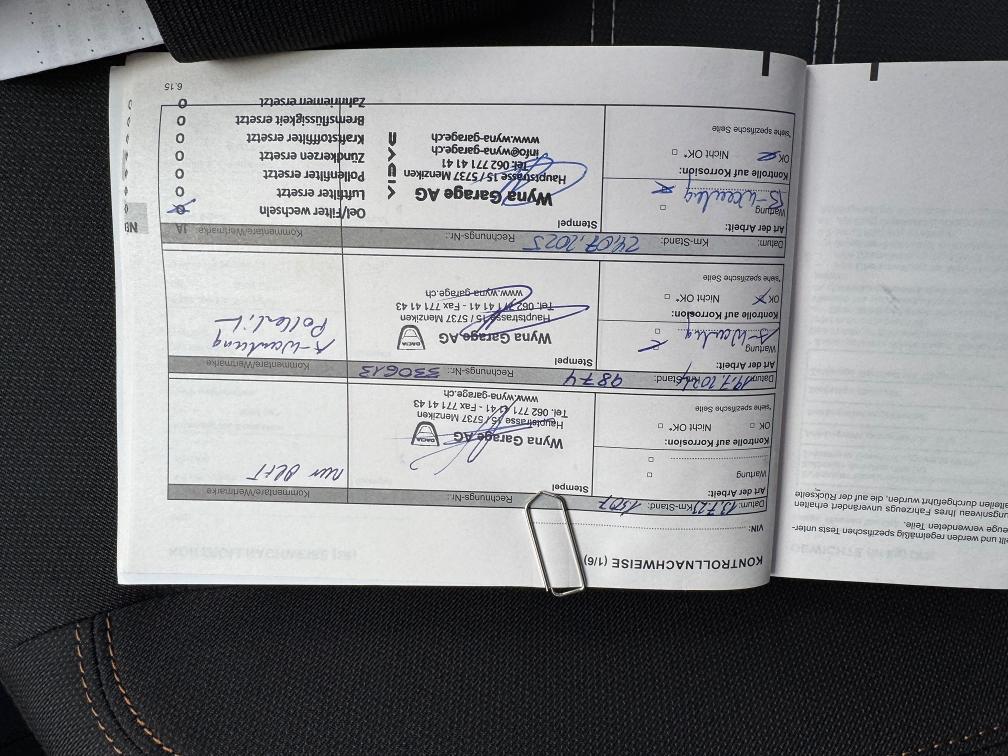 KONTROLLNACHWEISE (1/6)
VIN:
Datum: 13.7.23 Km-Stand: 1507 Rechnungs-Nr.: Kommentare/Vermarke
Art der Arbeit: Stempel
Wartung
Wyna Garage AG DACIA
Hauptstrasse 15 / 5737 Menziken
Tel. 062 771 41 41 - Fax 771 41 43
www.wyna-garage.ch
Kontrolle auf Korrosion:
OK Nicht OK*
*siehe spezifische Seite
Datum: 19.7.2024 Km-Stand: 9874 Rechnungs-Nr.: 330613 Kommentare/Vermarke
Art der Arbeit: Stempel
Wartung
A-Wartung
Wyna Garage AG DACIA
Hauptstrasse 15 / 5737 Menziken
Tel. 062 771 41 41 - Fax 771 41 43
www.wyna-garage.ch
A-Wartung
Kontrolle auf Korrosion:
OK Nicht OK*
*siehe spezifische Seite
Datum: 24.07.2025 Km-Stand: Rechnungs-Nr.: Kommentare/Vermarke JA
Art der Arbeit: Stempel
Wartung
B-Wartung
Wyna Garage AG
Hauptstrasse 15 / 5737 Menziken
Tel. 062 771 41 41
info@wyna-garage.ch
www.wyna-garage.ch
Kontrolle auf Korrosion:
OK Nicht OK*
*siehe spezifische Seite
Oel/Filter wechseln
Luftfilter ersetzt
Pollenfilter ersetzt
Zündkerzen ersetzt
Kraftstofffilter ersetzt
Bremsflüssigkeit ersetzt
Zahnriemen ersetzt
6.15
und werden regelmäßig spezifischen Tests unter-
verwendeten Teile.
Ihres Fahrzeugs unverändert erhalten
durchgeführt wurden, die auf der Rückseite